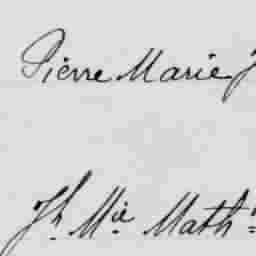 Pierre Marie J
Jh. Mie. Mathn.